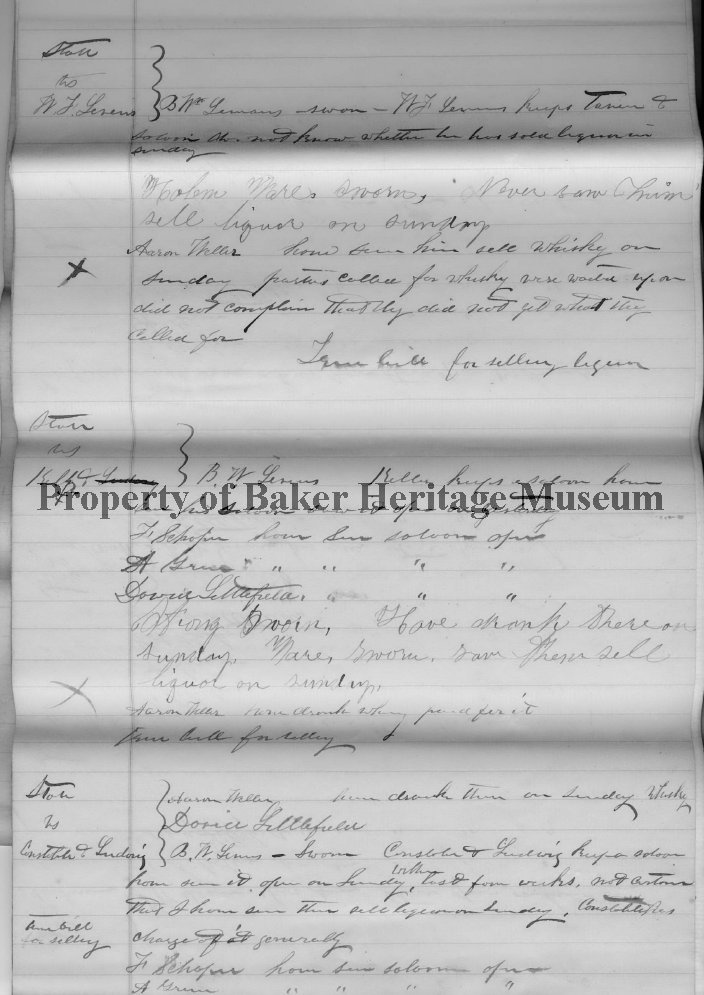 State
vs
W. F. Levens } B. W. Levens - sworn - W F Levens keeps Tavern &
saloon do not know whether he has sold liquor on
sunday
Ware, sworn, Never saw him
sell liquor on sunday
Aaron Weller have seen him sell whisky on
sunday parties called for whisky were waited upon
did not complain that they did not get what they
called for
True bill for selling liquor
State
vs
B. W. Levens keeps a saloon have
Property of Baker Heritage Museum
F Schoper have seen saloon open
A Green " " " "
David Littlefield " " "
sworn, Have drank there on
sunday. Ware, sworn. saw them sell
liquor on sunday.
Aaron Weller have drank whisky paid for it
True bill for selling
State
vs
Constable & Ludwig
Aaron Weller have drank there on sunday whisky
David Littlefield
B. W. Levens - Sworn Constable & Ludwig keep a saloon
have seen it open on Sunday, within last four weeks, not certain
that I have seen them sell liquor on Sunday, Constable has
charge of it generally
True bill
for selling
F Schoper have seen saloon open
A Green " " " "